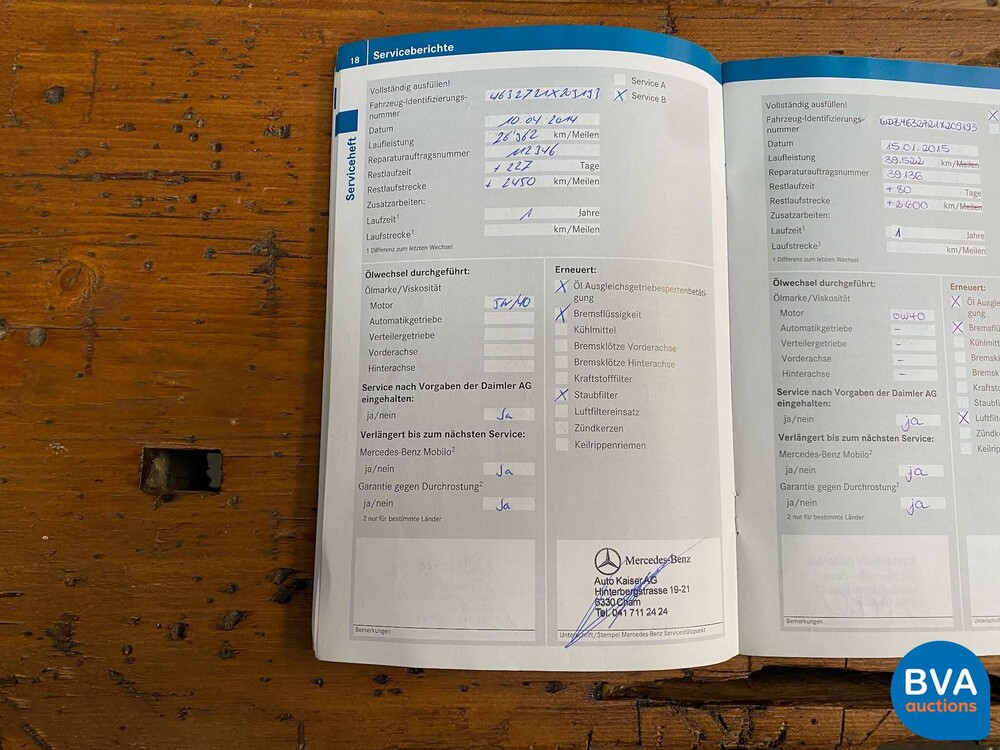 18 Serviceberichte
Serviceheft
Vollständig ausfüllen!
Fahrzeug-Identifizierungs-
nummer 4632721X209193
Datum 10.04.2014
Laufleistung 26'962 km/Meilen
Reparaturauftragsnummer 112346
Restlaufzeit + 227 Tage
Restlaufstrecke + 2450 km/Meilen
Zusatzarbeiten:
Laufzeit¹ 1 Jahre
Laufstrecke¹ km/Meilen
1 Differenz zum letzten Wechsel
Service A
X Service B
Ölwechsel durchgeführt:
Ölmarke/Viskosität
Motor 5W/40
Automatikgetriebe
Verteilergetriebe
Vorderachse
Hinterachse
Service nach Vorgaben der Daimler AG
eingehalten:
ja/nein Ja
Verlängert bis zum nächsten Service:
Mercedes-Benz Mobilo²
ja/nein Ja
Garantie gegen Durchrostung²
ja/nein Ja
2 nur für bestimmte Länder
Erneuert:
X Öl Ausgleichsgetriebesperrenbetäti-
gung
X Bremsflüssigkeit
Kühlmittel
Bremsklötze Vorderachse
Bremsklötze Hinterachse
Kraftstofffilter
X Staubfilter
Luftfiltereinsatz
Zündkerzen
Keilrippenriemen
Bemerkungen
Mercedes-Benz
Auto Kaiser AG
Hinterbergstrasse 19-21
6330 Cham
Tel. 041 711 24 24
Unterschrift/Stempel Mercedes-Benz Servicestützpunkt
Vollständig ausfüllen!
Fahrzeug-Identifizierungs-
nummer WDB4632721X209193
X
Datum 15.01.2015
Laufleistung 39.522 km/Meilen
Reparaturauftragsnummer 39136
Restlaufzeit + 80 Tage
Restlaufstrecke + 2.600 km/Meilen
Zusatzarbeiten:
Laufzeit¹ 1 Jahre
Laufstrecke¹ km/Meilen
1 Differenz zum letzten Wechsel
Ölwechsel durchgeführt:
Ölmarke/Viskosität
Motor 0W40
Automatikgetriebe –
Verteilergetriebe –
Vorderachse –
Hinterachse –
Service nach Vorgaben der Daimler AG
eingehalten:
ja/nein ja
Verlängert bis zum nächsten Service:
Mercedes-Benz Mobilo²
ja/nein ja
Garantie gegen Durchrostung²
ja/nein ja
2 nur für bestimmte Länder
Erneuert:
X Öl Ausgle
gung
X Bremsflü
Kühlmitt
Bremsk
Bremsk
Kraftsto
Staubfi
X Luftfilt
Zündk
Keilrip
Bemerkungen
Unterschrif
BVA
auctions